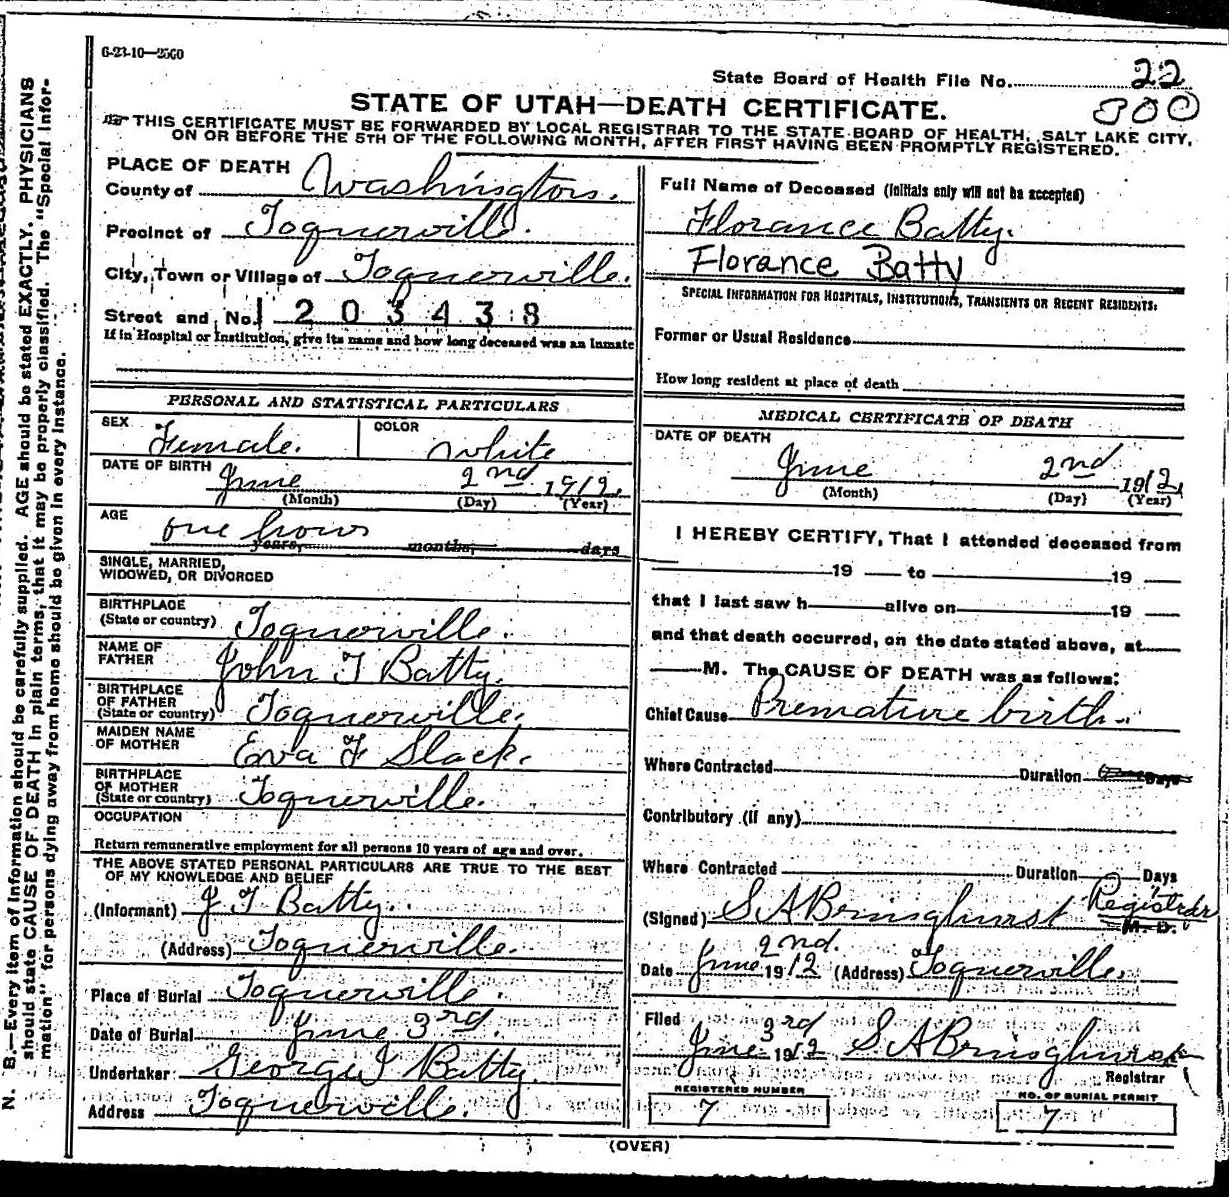 6-23-10—2500
State Board of Health File No. 22
300
STATE OF UTAH—DEATH CERTIFICATE.
THIS CERTIFICATE MUST BE FORWARDED BY LOCAL REGISTRAR TO THE STATE BOARD OF HEALTH, SALT LAKE CITY,
ON OR BEFORE THE 5TH OF THE FOLLOWING MONTH, AFTER FIRST HAVING BEEN PROMPTLY REGISTERED.
PLACE OF DEATH
County of Washington.
Precinct of Toquerville.
City, Town or Village of Toquerville.
Street and No. 1203438
If in Hospital or Institution, give its name and how long deceased was an Inmate
PERSONAL AND STATISTICAL PARTICULARS
SEX Female. COLOR White
DATE OF BIRTH June 2nd 1912.
(Month) (Day) (Year)
AGE one hour
years, months, days
SINGLE, MARRIED,
WIDOWED, OR DIVORCED
BIRTHPLACE
(State or country) Toquerville.
NAME OF
FATHER John T Batty.
BIRTHPLACE
OF FATHER
(State or country) Toquerville.
MAIDEN NAME
OF MOTHER Eva F Slack.
BIRTHPLACE
OF MOTHER
(State or country) Toquerville.
OCCUPATION
Return remunerative employment for all persons 10 years of age and over.
THE ABOVE STATED PERSONAL PARTICULARS ARE TRUE TO THE BEST
OF MY KNOWLEDGE AND BELIEF
(Informant) J T Batty.
(Address) Toquerville.
Place of Burial Toquerville.
Date of Burial June 3rd.
Undertaker George J Batty.
Address Toquerville.
Full Name of Deceased (Initials only will not be accepted)
Florance Batty.
Florance Batty
SPECIAL INFORMATION FOR HOSPITALS, INSTITUTIONS, TRANSIENTS OR RECENT RESIDENTS:
Former or Usual Residence
How long resident at place of death
MEDICAL CERTIFICATE OF DEATH
DATE OF DEATH
June 2nd 1912.
(Month) (Day) (Year)
I HEREBY CERTIFY, That I attended deceased from
19 to 19
that I last saw h alive on 19
and that death occurred, on the date stated above, at
M. The CAUSE OF DEATH was as follows:
Chief Cause Premature birth.
Where Contracted Duration Days
Contributory (if any)
Where Contracted Duration Days
(Signed) S A Bringhurst Registrar
M. D.
Date June 2nd. 1912 (Address) Toquerville.
Filed
June 3rd 1912 S A Bringhurst
Registrar
REGISTERED NUMBER
7
NO. OF BURIAL PERMIT
7
(OVER)
N. B.—Every item of information should be carefully supplied. AGE should be stated EXACTLY. PHYSICIANS
should state CAUSE OF DEATH in plain terms, that it may be properly classified. The "Special Infor-
mation" for persons dying away from home should be given in every instance.